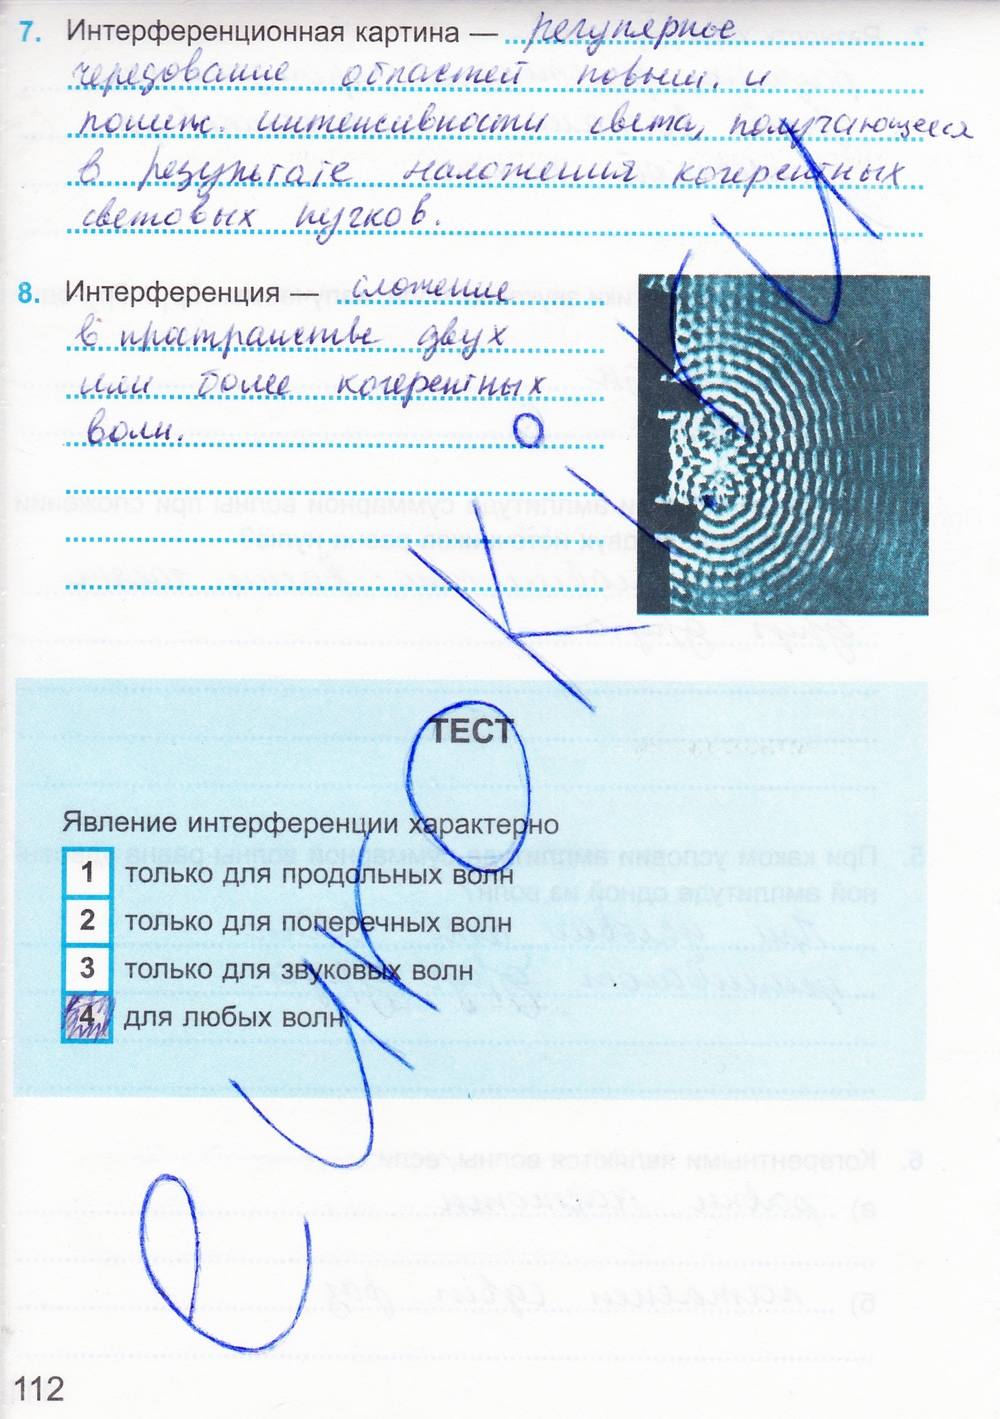 7. Интерференционная картина — регулярное
чередование областей повыш. и
пониж. интенсивности света, получающееся
в результате наложения когерентных
световых пучков.
8. Интерференция — сложение
в пространстве двух
или более когерентных
волн.
ТЕСТ
Явление интерференции характерно
1 только для продольных волн
2 только для поперечных волн
3 только для звуковых волн
4 для любых волн
112